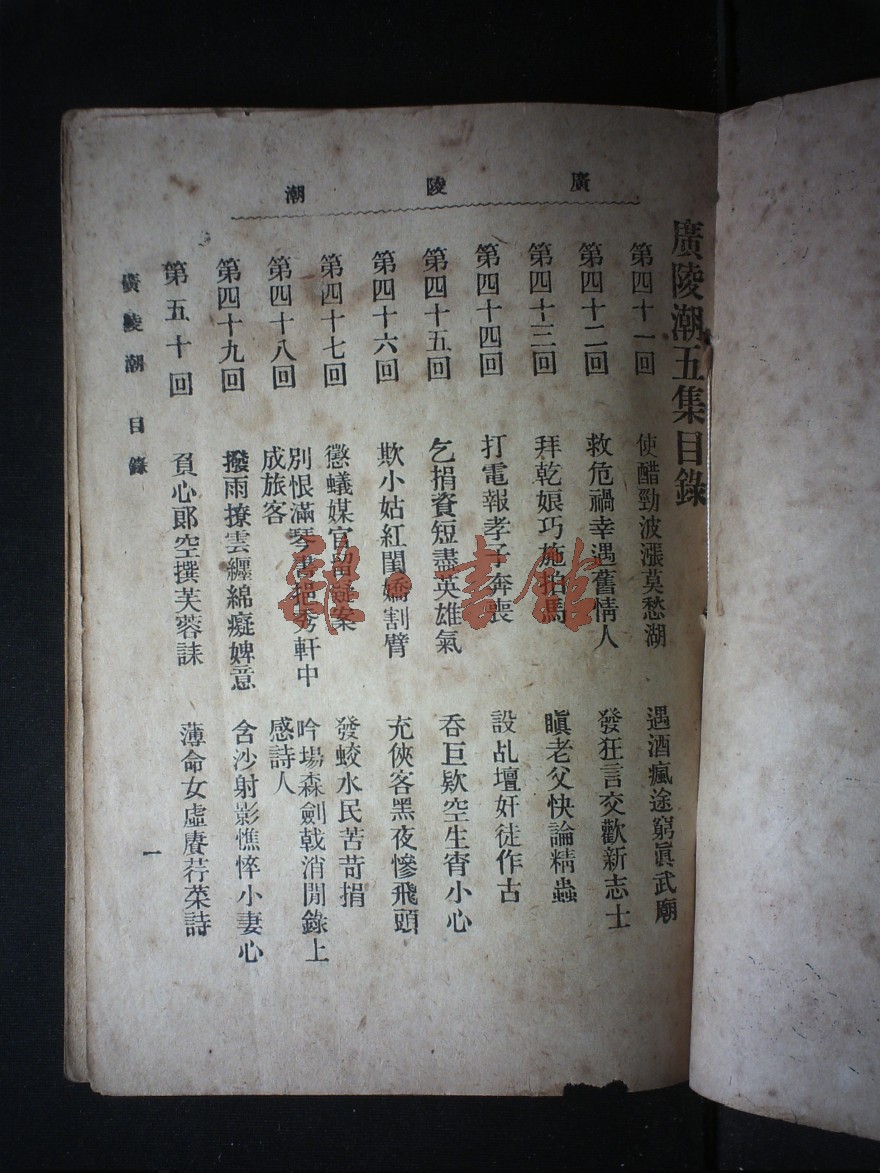 廣陵潮
廣陵潮五集目錄
第四十一回 使醋勁波漲莫愁湖 遇酒瘋途窮眞武廟
第四十二回 救危禍幸遇舊情人 發狂言交歡新志士
第四十三回 拜乾娘巧施拍馬 瞋老父快論精蟲
第四十四回 打電報孝子奔喪 設乩壇奸徒作古
第四十五回 乞捐資短盡英雄氣 吞巨欵空生宵小心
第四十六回 欺小姑紅閨嬌割臂 充俠客黑夜慘飛頭
第四十七回 懲蟻媒官留疑案 發蛟水民苦苛捐
第四十八回 別恨滿琴書挹秀軒中成旅客 吟場森劍戟消閒錄上感詩人
第四十九回 撥雨撩雲纏綿癡婢意 含沙射影憔悴小妻心
第五十回 負心郎空撰芙蓉誄 薄命女虛賡荇菜詩
廣陵潮 目錄
一